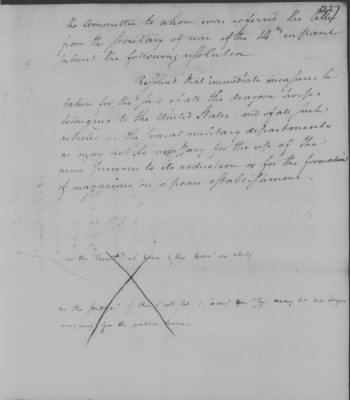 227
the Committee to whom was referred the letter
from the Secretary of war of the 14th instant
submit the following resolution
Resolved that immediate measures be
taken for the sale of all the dragoon horses
belonging to the United States and of all such
articles in the several military departments
as may not be necessary for the use of the
army previous to its reduction or for the formation
of magazines on a peace establishment.
as the
may be no longer
necessary for the public service